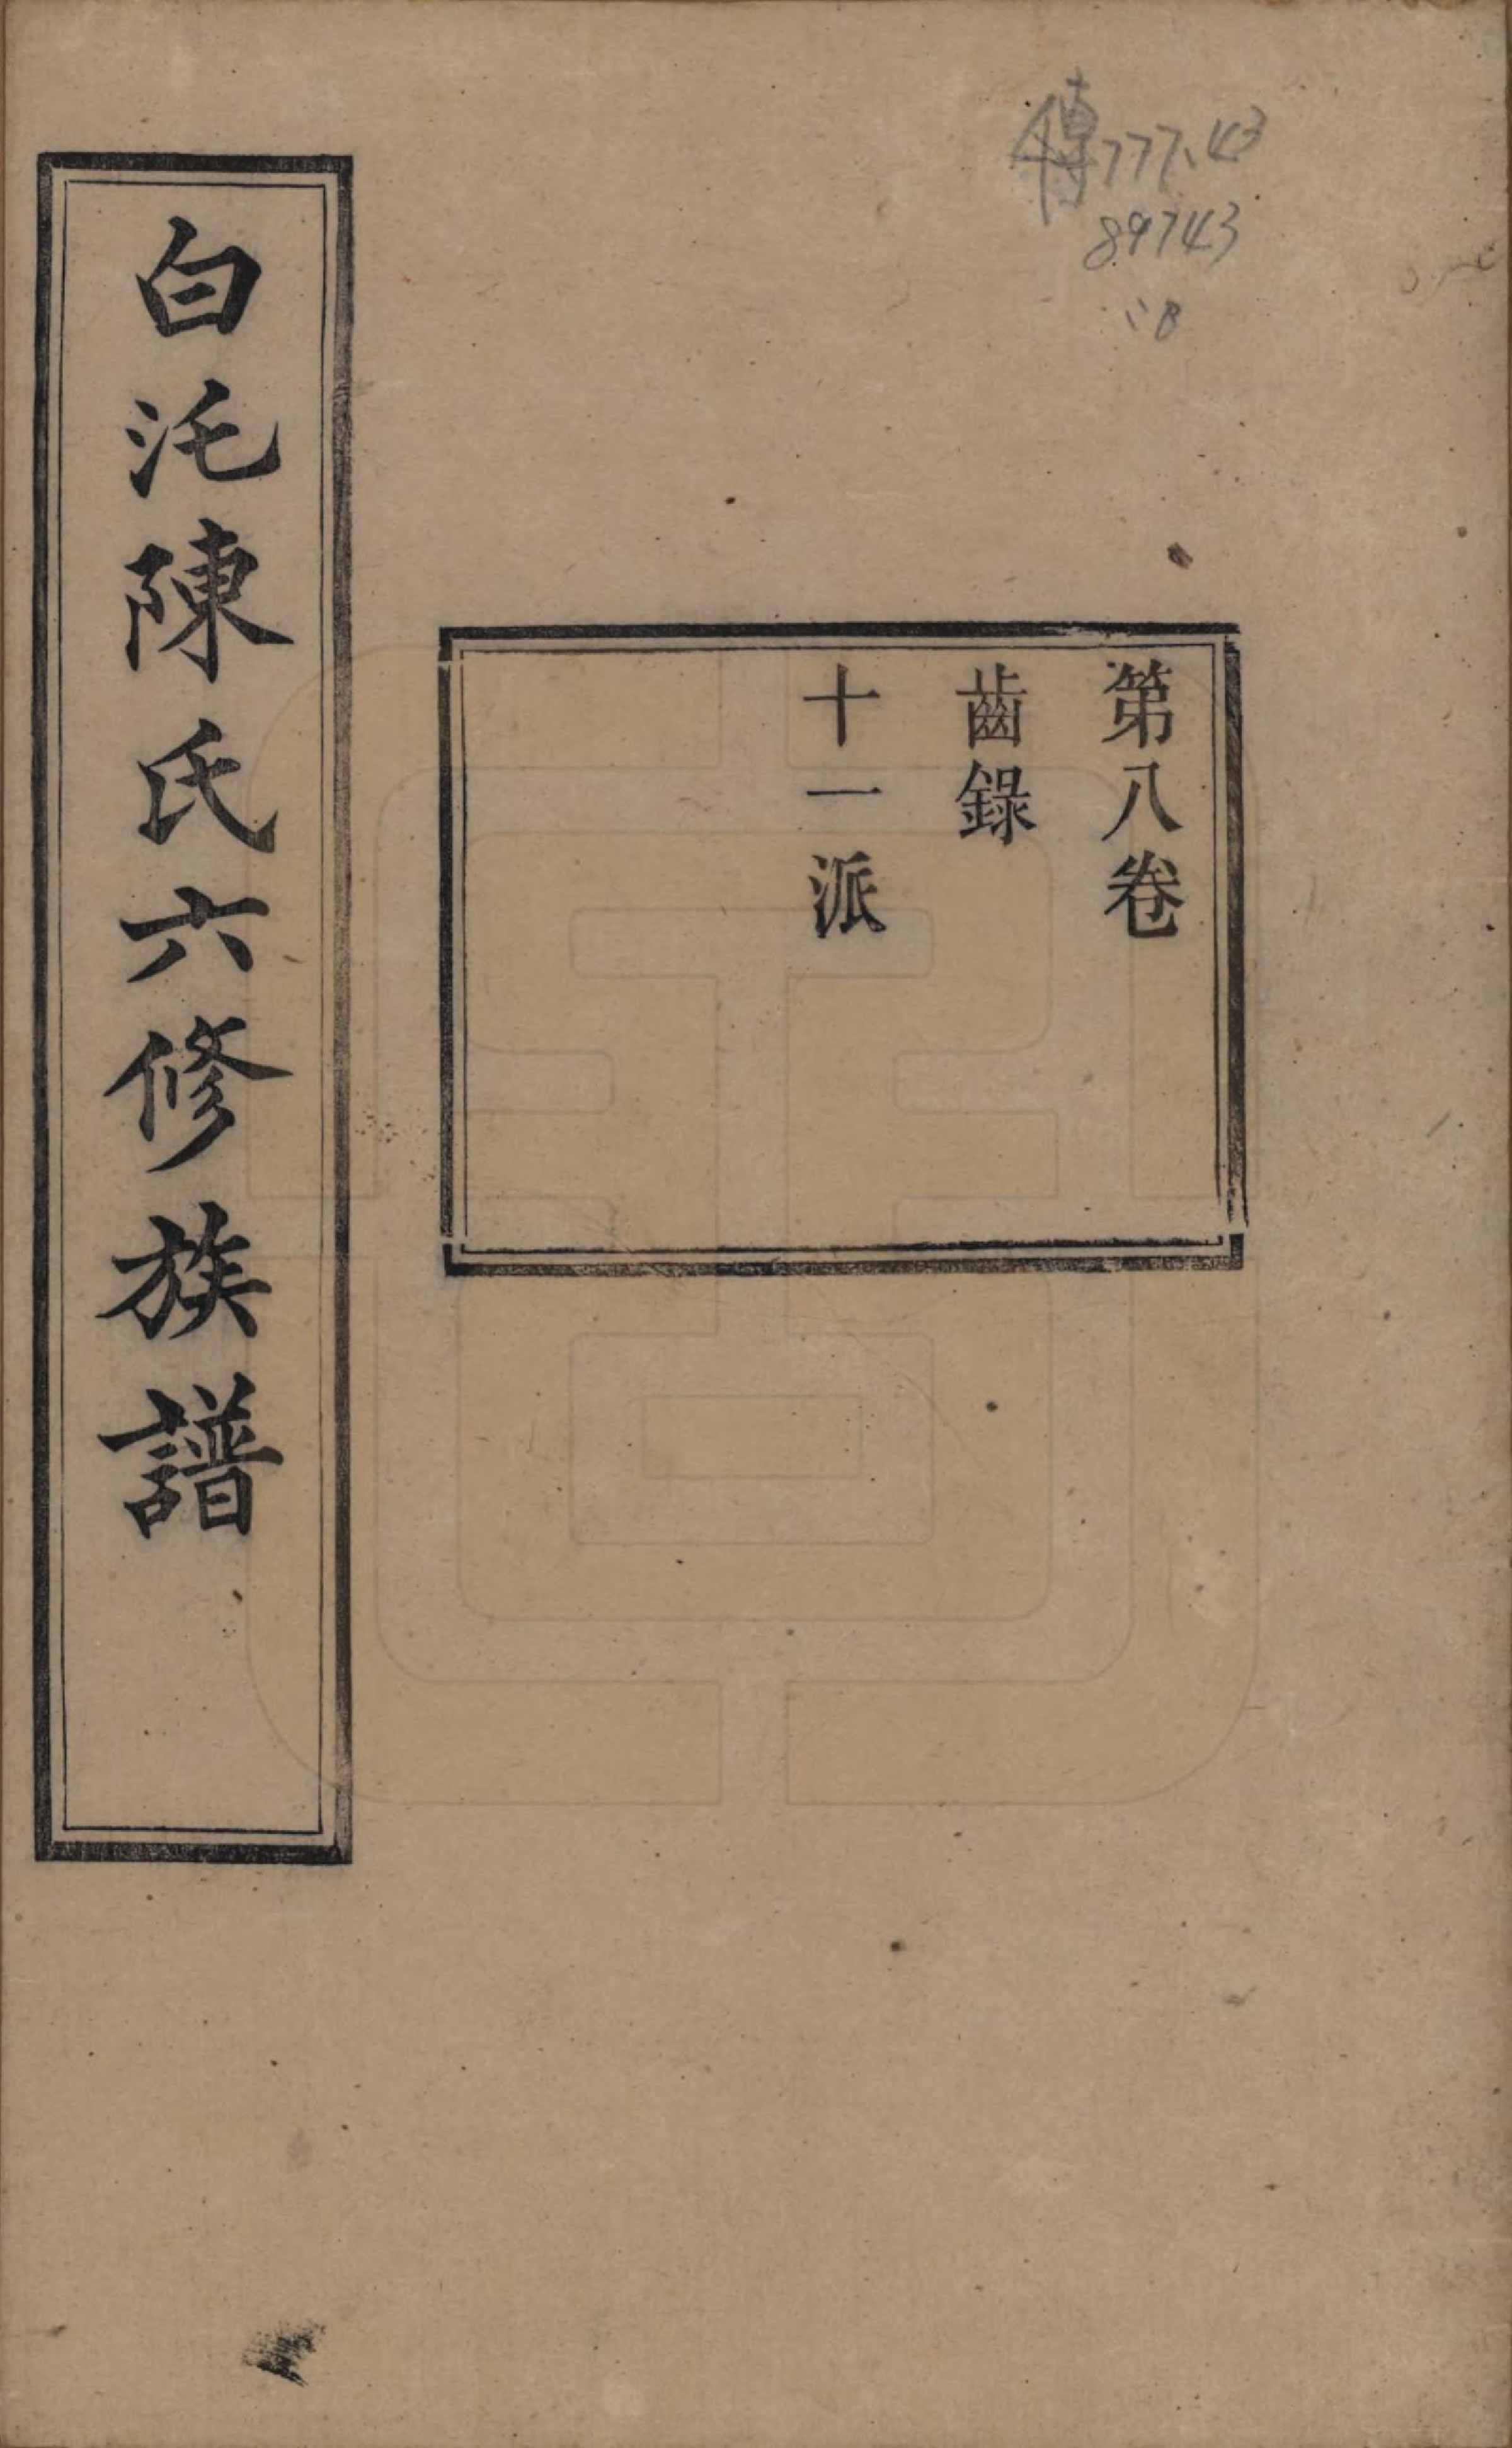 傳777.43
89743
:8
第八卷
齒錄
十一派
白沱陳氏六修族譜